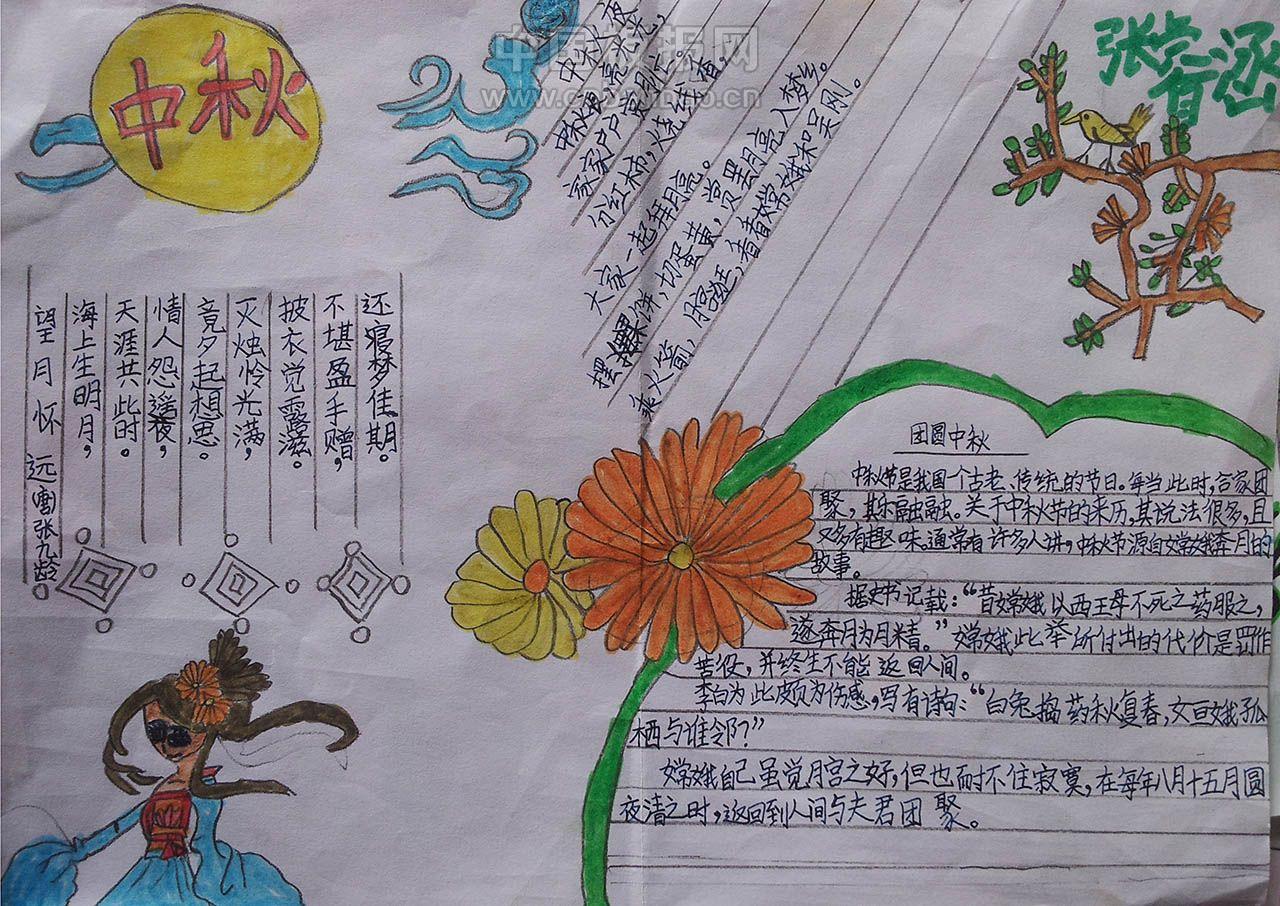 中秋
中秋夜
中秋夜,亮光光,
家家户户赏月忙。
大家一起拜月亮。
饼,切蛋黄,赏罢月亮入梦乡。
乘火箭,看看嫦娥和吴刚。
张宥涵
望月怀远 唐 张九龄
海上生明月,
天涯共此时。
情人怨遥夜,
竟夕起想思。
灭烛怜光满,
披衣觉露滋。
不堪盈手赠,
还寝梦佳期。
团圆中秋
中秋节是我国一个古老、传统的节日。每当此时,合家团
聚,其乐融融。关于中秋节的来历,其说法很多,且
又多有趣味。通常有许多人讲,中秋节源自嫦娥奔月的
故事。
据史书记载:“昔嫦娥以西王母不死之药服之,
遂奔月为月精。”嫦娥此举所付出的代价是罚作
苦役,并终生不能返回人间。
李白为此颇为伤感,写有诗句:“白兔捣药秋复春,姮娥孤
栖与谁邻?”
嫦娥自己虽觉月宫之好,但也耐不住寂寞,在每年八月十五月圆
夜清之时,返回到人间与夫君团聚。